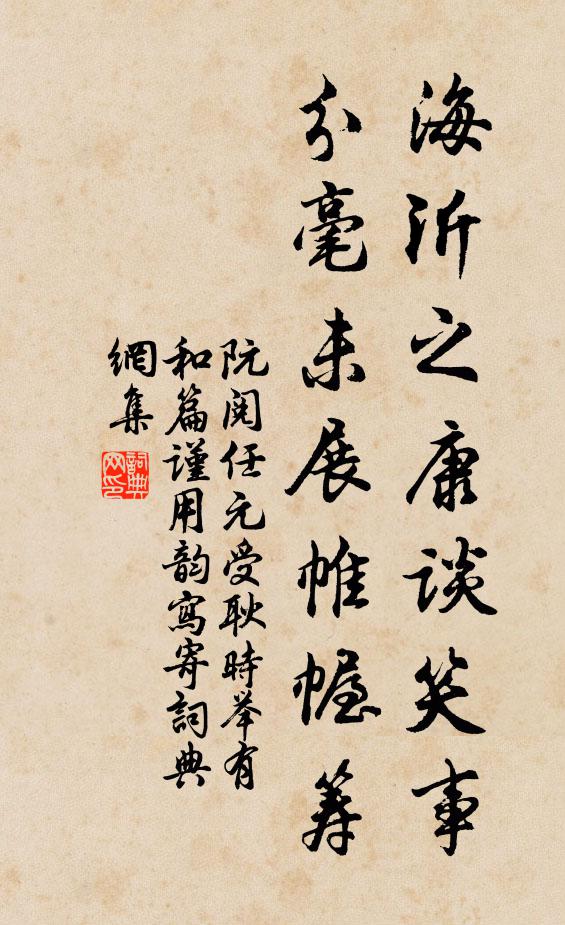 海沂之康谈笑事
分毫未展帷幄筹
阮阅任元受耿時举有
和篇谨用韵寫寄詞典
網集
詞典網印